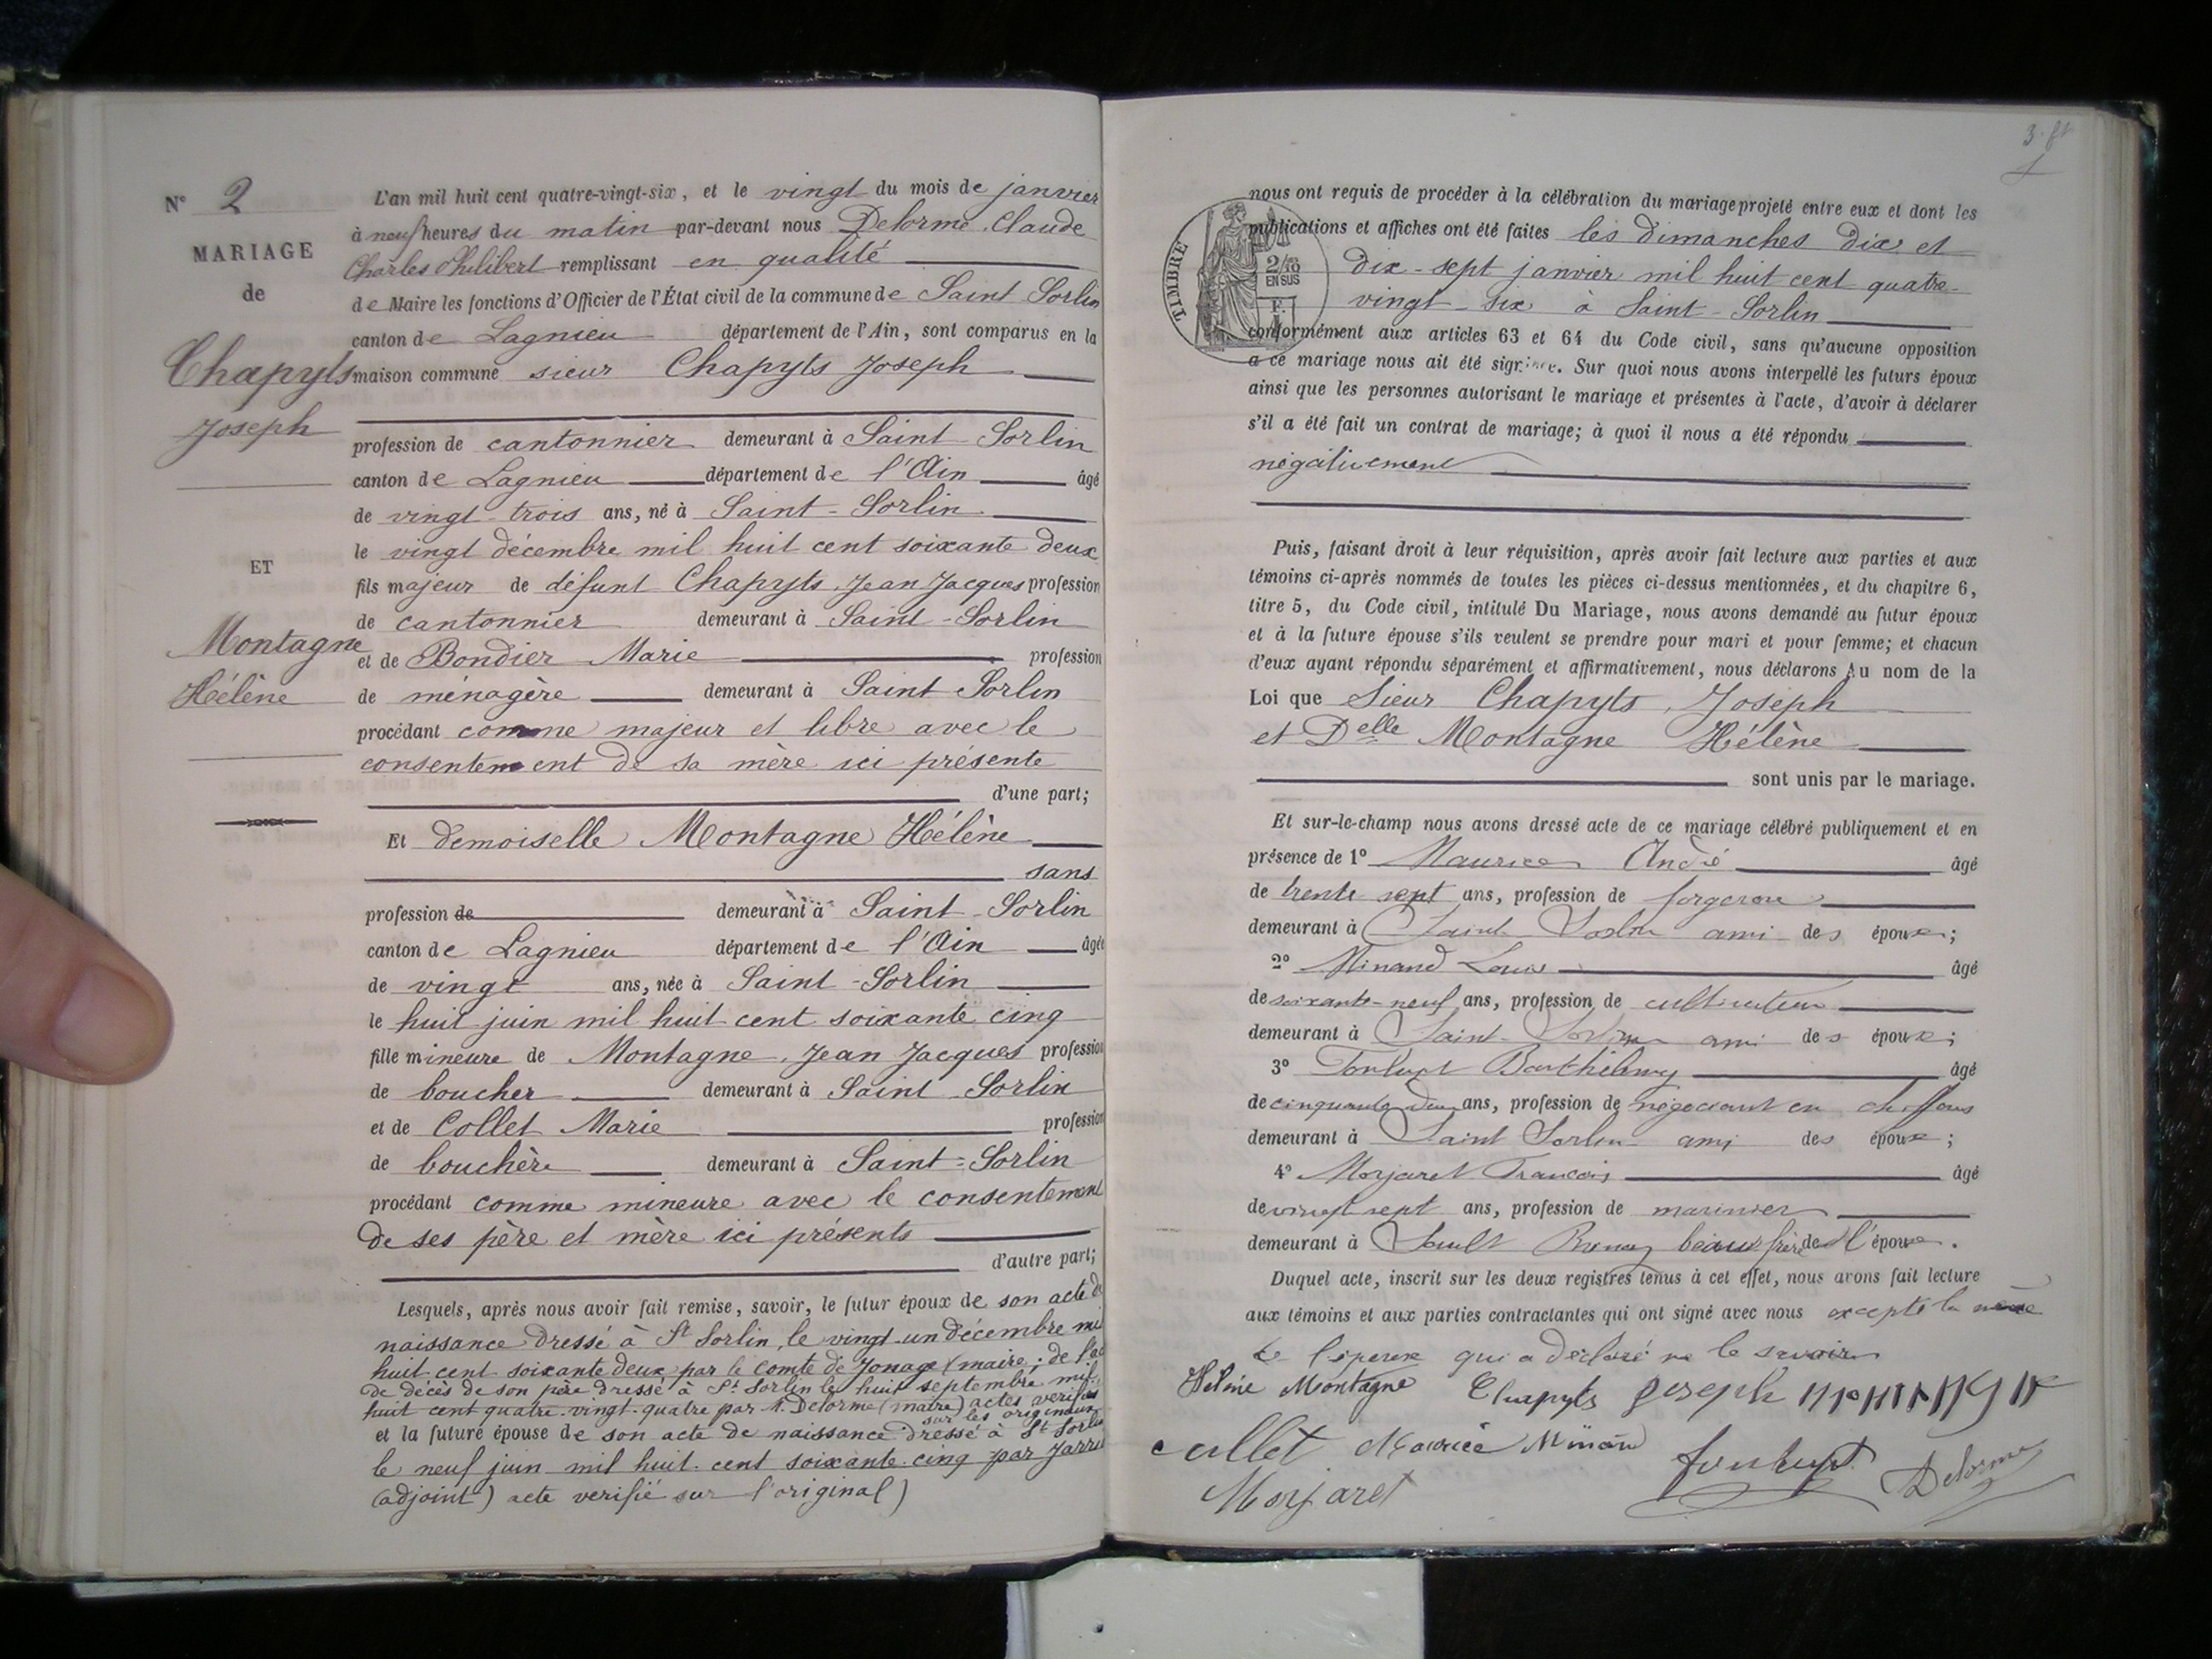 N° 2
MARIAGE
de
Chapyts
Joseph
ET
Montagne
Hélène
L'an mil huit cent quatre-vingt-six, et le vingt du mois de janvier
à neuf heures du matin par-devant nous Delorme Claude
Charles Philibert remplissant en qualité
de Maire les fonctions d'Officier de l'État civil de la commune de Saint Sorlin
canton de Lagnieu département de l'Ain, sont comparus en la
maison commune sieur Chapyts Joseph
profession de cantonnier demeurant à Saint-Sorlin
canton de Lagnieu département de l'Ain âgé
de vingt-trois ans, né à Saint-Sorlin
le vingt décembre mil huit cent soixante deux
fils majeur de défunt Chapyts Jean Jacques profession
de cantonnier demeurant à Saint-Sorlin
et de Bondier Marie profession
de ménagère demeurant à Saint Sorlin
procédant comme majeur et libre avec le
consentement de sa mère ici présente
d'une part;
Et demoiselle Montagne Hélène
sans
profession de demeurant à Saint-Sorlin
canton de Lagnieu département de l'Ain âgée
de vingt ans, née à Saint-Sorlin
le huit juin mil huit cent soixante cinq
fille mineure de Montagne Jean Jacques profession
de boucher demeurant à Saint Sorlin
et de Collet Marie profession
de bouchère demeurant à Saint-Sorlin
procédant comme mineure avec le consentement
de ses père et mère ici présents
d'autre part;
Lesquels, après nous avoir fait remise, savoir, le futur époux de son acte de
naissance dressé à St Sorlin, le vingt-un décembre mil
huit cent soixante deux par le comte de Jonage (maire); de l'ac
de décès de son père dressé à St Sorlin le huit septembre mil
huit cent quatre-vingt-quatre par M. Delorme (maire) actes verifiés
sur les originaux
et la future épouse de son acte de naissance dressé à St Sorlin
le neuf juin mil huit cent soixante cinq par
(adjoint) acte verifié sur l'original)
3
nous ont requis de procéder à la célébration du mariage projeté entre eux et dont les
publications et affiches ont été faites les dimanches dix et
dix-sept janvier mil huit cent quatre-
vingt-six à Saint-Sorlin
TIMBRE
2/10
EN SUS
F.
conformément aux articles 63 et 64 du Code civil, sans qu'aucune opposition
a ce mariage nous ait été signifiée. Sur quoi nous avons interpellé les futurs époux
ainsi que les personnes autorisant le mariage et présentes à l'acte, d'avoir à déclarer
s'il a été fait un contrat de mariage; à quoi il nous a été répondu
négativement
Puis, faisant droit à leur réquisition, après avoir fait lecture aux parties et aux
témoins ci-après nommés de toutes les pièces ci-dessus mentionnées, et du chapitre 6,
titre 5, du Code civil, intitulé Du Mariage, nous avons demandé au futur époux
et à la future épouse s'ils veulent se prendre pour mari et pour femme; et chacun
d'eux ayant répondu séparément et affirmativement, nous déclarons Au nom de la
Loi que Sieur Chapyts, Joseph
et Delle Montagne Hélène
sont unis par le mariage.
Et sur-le-champ nous avons dressé acte de ce mariage célébré publiquement et en
présence de 1° Maurice André âgé
de trente sept ans, profession de forgeron
demeurant à Saint Sorlin ami des époux;
2° Minand Louis âgé
de soixante-neuf ans, profession de cultivateur
demeurant à Saint-Sorlin ami des époux;
3° Barthélemy âgé
de cinquante deux ans, profession de négociant en chiffons
demeurant à Saint Sorlin ami des époux;
4° Morjaret Francois âgé
de vingt sept ans, profession de marinier
demeurant à Sault Brenaz beau frère de l'époux.
Duquel acte, inscrit sur les deux registres tenus à cet effet, nous avons fait lecture
aux témoins et aux parties contractantes qui ont signé avec nous excepté la mère
de l'époux qui a déclaré ne le savoir
Helène Montagne Chapyts Joseph
Collet Maurice Minand Delorme
Morjaret